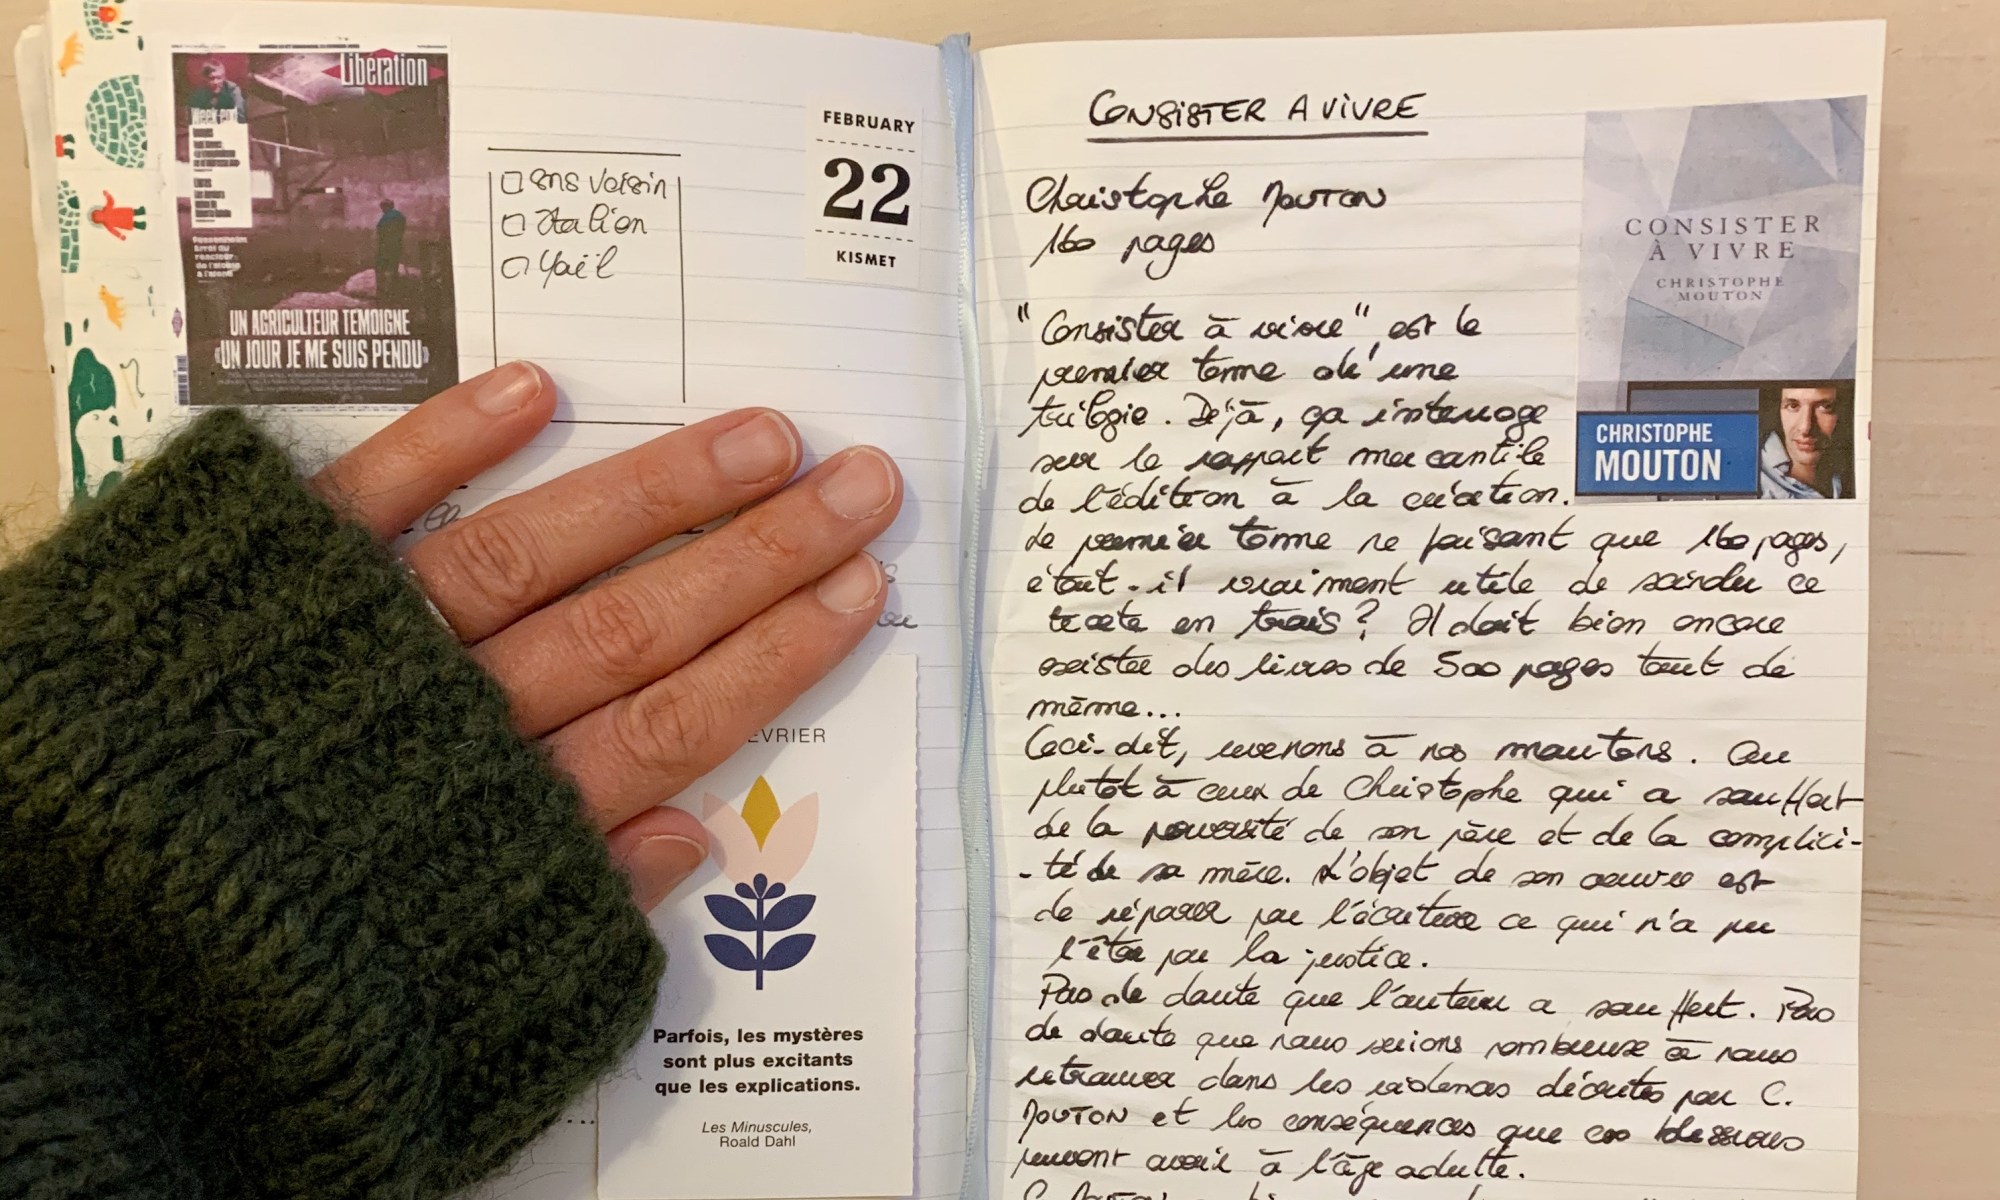 Libération
Week-end
UN AGRICULTEUR TEMOIGNE
«UN JOUR JE ME SUIS PENDU»
sms voisin
Italien
Yaël
FEBRUARY
22
KISMET
EVRIER
Parfois, les mystères
sont plus excitants
que les explications.
Les Minuscules,
Roald Dahl
CONSISTER A VIVRE
Christophe MOUTON
160 pages
"Consister à vivre", est le
premier tome d'une
trilogie. Déjà, ça interroge
sur le rapport mercantile
de l'édition à la création.
Le premier tome ne faisant que 160 pages,
était-il vraiment utile de scinder ce
texte en trois ? Il doit bien encore
exister des livres de 500 pages tout de
même...
Ceci-dit, revenons à nos moutons. Ou
plutôt à ceux de Christophe qui a souffert
de la perversité de son père et de la complici-
-té de sa mère. L'objet de son oeuvre est
de réparer par l'écriture ce qui n'a pu
l'être par la justice.
Pas de doute que l'auteur a souffert. Pas
de doute que nous serions nombreux à nous
retrouver dans les violences décrites par C.
MOUTON et les conséquences que ces blessures
peuvent avoir à l'âge adulte.
CONSISTER
À VIVRE
CHRISTOPHE
MOUTON
CHRISTOPHE
MOUTON